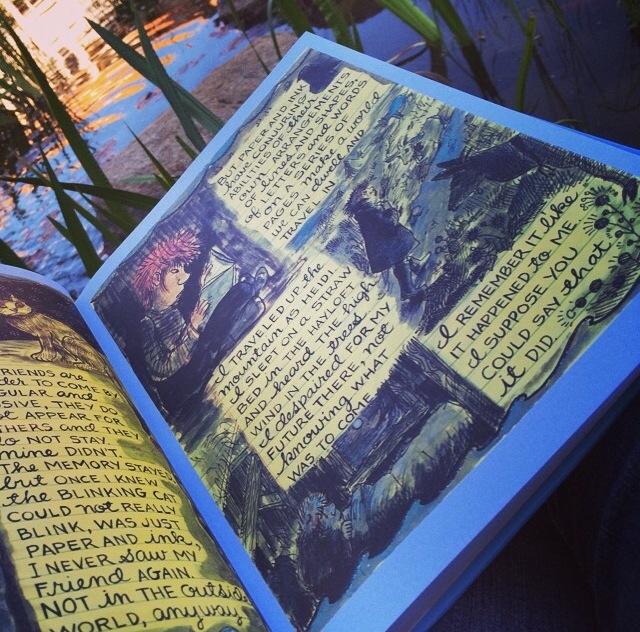 FRIENDS are
TO COME BY
SIVE, THEY DO
APPEAR FOR
OTHERS and THEY
do NOT STAY.
mine DIDN'T.
THE MEMORY STAYED
but ONCE I KNEW
the BLINKING CAT
COULD not REALLY
BLINK, WAS JUST
PAPER AND ink,
I NEVER SAW MY
Friend AGAIN.
NOT in THE Outside
WORLD, anyway.
BUT PAPER AND INK
have CONJURING
ABILITIES OF their
OWN. ARRANGEMENTS
OF lines AND SHAPES,
of LETTERS and WORDS
on A SERIES OF
PAGES make WORLDS
we CAN dwell AND
TRAVEL IN.
I TRAVELED UP the
mountain AS HEIDI.
I SLEPT ON A STRAW
BED in THE HAYLOFT
AND heard THE high
WIND IN THE trees
I despaired FOR MY
FUTURE THERE, not
knowing WHAT
WAS TO COME
I REMEMBER IT like
IT HAPPENED to ME
I SUPPOSE YOU
COULD SAY that
it DID.